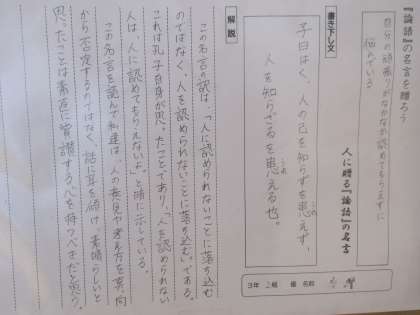 『論語』の名言を贈ろう
自分の頑張りがなかなか認めてもらえずに
悩んでいる
人に贈る『論語』の名言
3年 2組 番 名前
書き下し文
子曰はく、人の己を知らずを患えず、
人を知らざるを患える也。
解説
この名言の訳は、「人に認められないことに落ち込む
のではなく、人を認められないことに落ち込む」である。
これは孔子自身が思ったことであり、「人を認められない
人は、人に認めてもらえないよ。」と暗に示している。
この名言を読んで私達は、人の意見や考え方を真向
から否定するのではなく、話に耳を傾け、素晴らしいと
思ったことは素直に賞讃する心を持つべきだと思う。